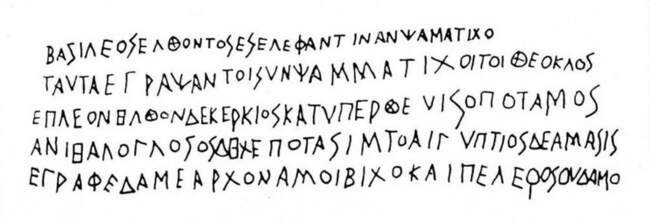 ΒΑΣΙΛΕΟΣΕΛΘΟΝΤΟΣΕΣΕΛΕΦΑΝΤΙΝΑΝΨΑΜΑΤΙΧΟ
ΤΑΥΤΑΕΓΡΑΨΑΝΤΟΙΣΥΝΨΑΜΜΑΤΙΧΟΙΤΟΙΘΕΟΚΛΟΣ
ΕΠΛΕΟΝΗΛΘΟΝΔΕΚΕΡΚΙΟΣΚΑΤΥΠΕΡΘΕΥΙΣΟΠΟΤΑΜΟΣ
ΑΝΙΗΑΛΟΓΛΟΣΟΣΔΗΧΕΠΟΤΑΣΙΜΤΟΑΙΓΥΠΤΙΟΣΔΕΑΜΑΣΙΣ
ΕΓΡΑΦΕΔΑΜΕΑΡΧΟΝΑΜΟΙΒΙΧΟΚΑΙΠΕΛΕϘΟΣΟΥΔΑΜΟ